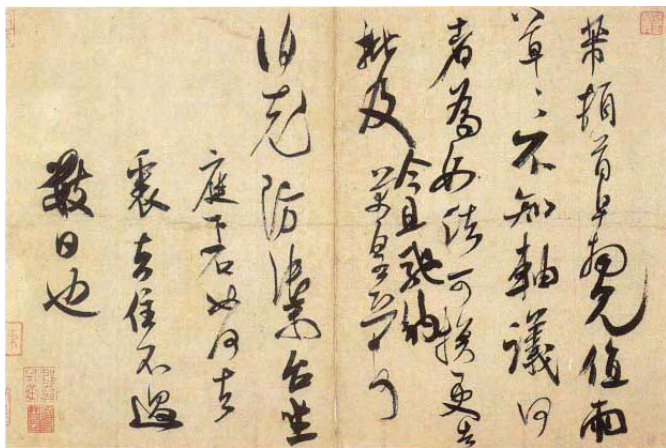 芾頓首早見值雨
草〻不知軸議何
者為如法可換更告
批及今且馳納芾皇恐頓首
伯充防禦台坐
庭石如何去
去住不過
數日也